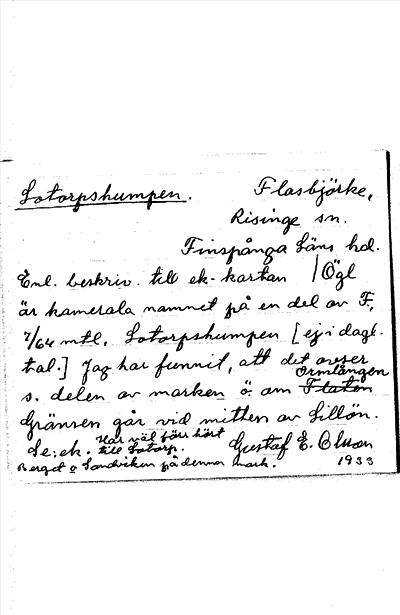 Sotorpshumpen. Flasbjörke,
Risinge sn.
Finspånga läns hd.
Enl. beskriv. till ek-kartan / Ögl
är kamerala namnet på en del av F,
7/64 mtl, Sotorpshumpen [ej i dagl.
tal.] Jag har funnit, att det avser
s. delen av marken ö. om Flaten Ormlången
Gränsen går vid mitten av Lillön.
Se: ek. Har väl förr hört till Sotorp. Gustaf E. Olsson
Berget o Sandviken på denna mark. 1933